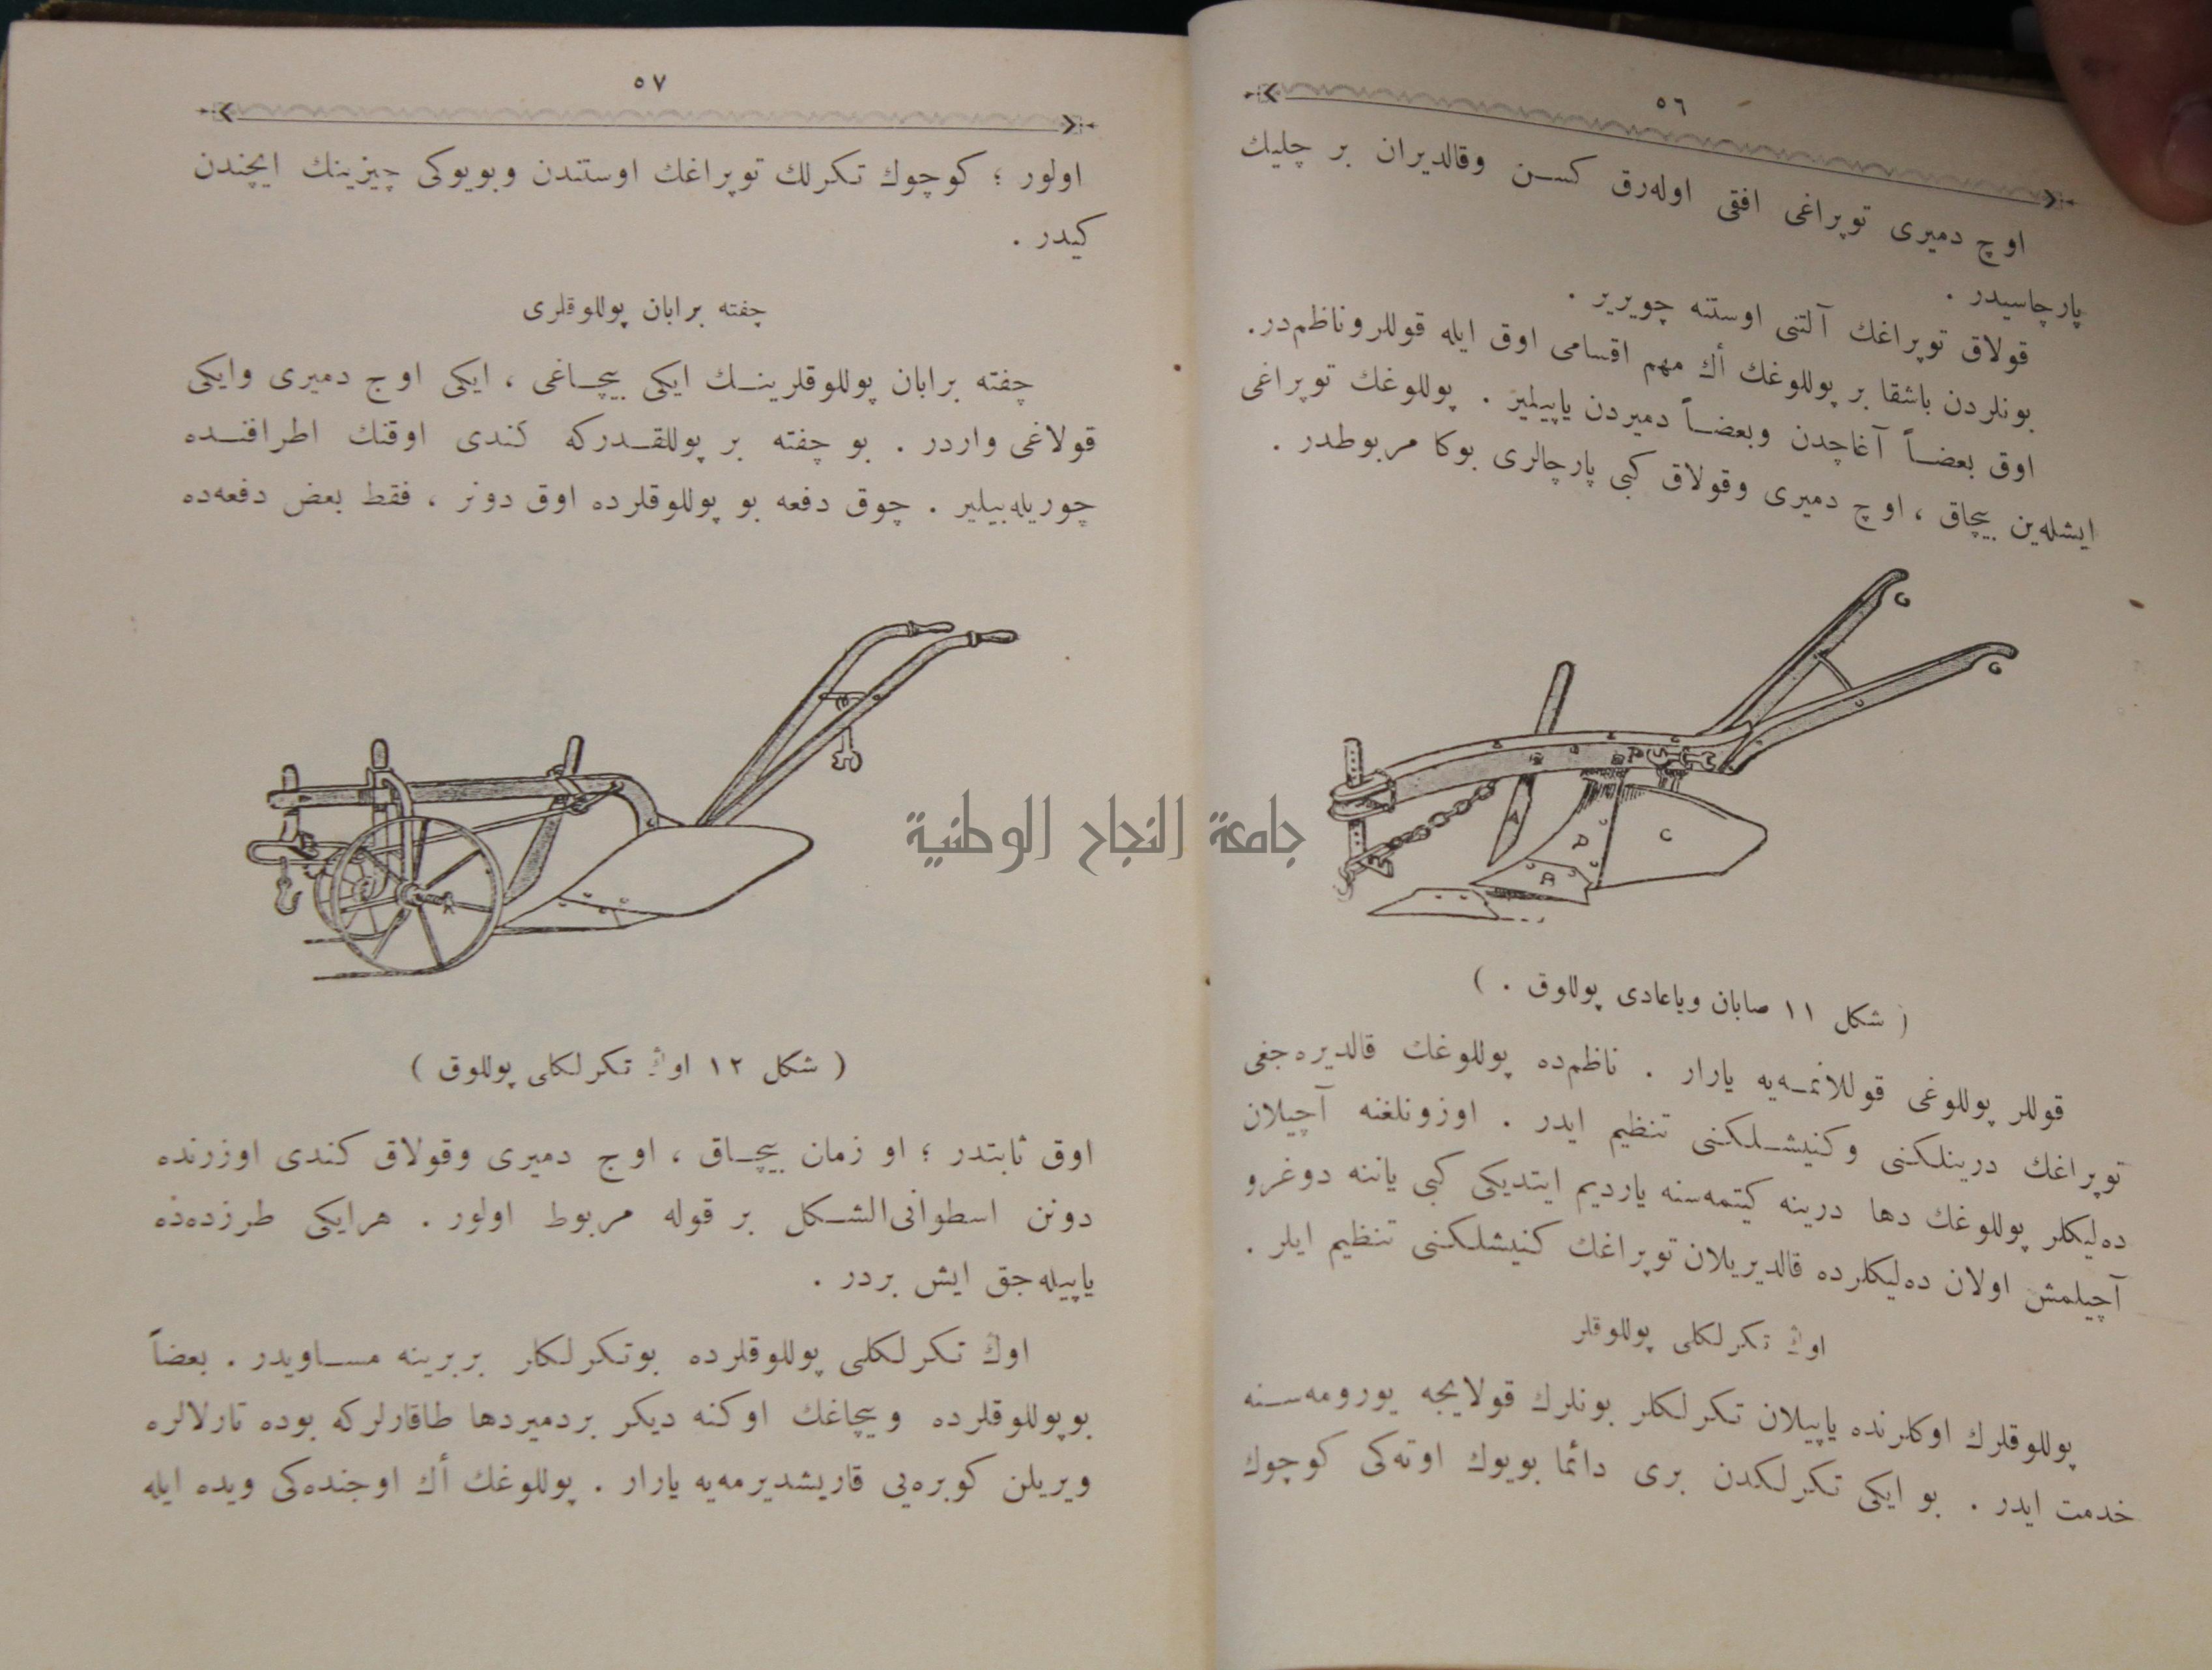 ٥٦
اوچ دميرى توپراغى افقى اولەرق كسن وقالديران بر چليك
پارچاسيدر .
قولاق توپراغك آلتنى اوستنه چويرير .
بونلردن باشقا بر پوللوغك أك مهم اقسامى اوق ايله قوللر وناظم‌در.
اوق بعضاً آغاچدن وبعضاً دميردن ياپيلير . پوللوغك توپراغى
ايشله‌ين بيچاق ، اوچ دميرى وقولاق كبى پارچالرى بوكا مربوطدر .
G
G
P
A
P
C
A
( شكل ١١ صابان وياعادى پوللوق . )
قوللر پوللوغى قوللانمه‌يه يارار . ناظم‌ده پوللوغك قالديره‌جغى
توپراغك درينلكنى وكنيشلكنى تنظيم ايدر . اوزونلغنه آچيلان
ده‌ليكلر پوللوغك دها درينه كيتمه‌سنه يارديم ايتديكى كبى ياننه دوغرو
آچيلمش اولان ده‌ليكلرده قالديريلان توپراغك كنيشلكنى تنظيم ايلر .
اوڭ تكرلكلى پوللوقلر
پوللوقلرك اوكلرنده ياپيلان تكرلكلر بونلرك قولايجه يورومه‌سنه
خدمت ايدر . بو ايكى تكرلكدن برى دائما بويوك اوته‌كى كوچوك
٥٧
اولور ؛ كوچوك تكرلك توپراغك اوستندن وبويوكى چيزينك ايچندن
كيدر .
چفته برابان پوللوقلرى
چفته برابان پوللوقلرينك ايكى بيچاغى ، ايكى اوج دميرى وايكى
قولاغى واردر . بو چفته بر پوللقدركه كندى اوقنك اطرافنده
چوريله‌بيلير . چوق دفعه بو پوللوقلرده اوق دونر ، فقط بعض دفعه‌ده
( شكل ١٢ اوڭ تكرلكلى پوللوق )
اوق ثابتدر ؛ او زمان بيچاق ، اوج دميرى وقولاق كندى اوزرنده
دونن اسطوانى‌الشكل بر قوله مربوط اولور . هرايكى طرزده‌ده
ياپيله‌جق ايش بردر .
اوڭ تكرلكلى پوللوقلرده بوتكرلكلر بربرينه مساويدر . بعضاً
بوپوللوقلرده وبيچاغك اوكنه ديكر بردميردها طاقارلركه بوده تارلالره
ويريلن كوبره‌يى قاريشديرمه‌يه يارار . پوللوغك أك اوجنده‌كى ويده ايله
جامعة النجاح الوطنية